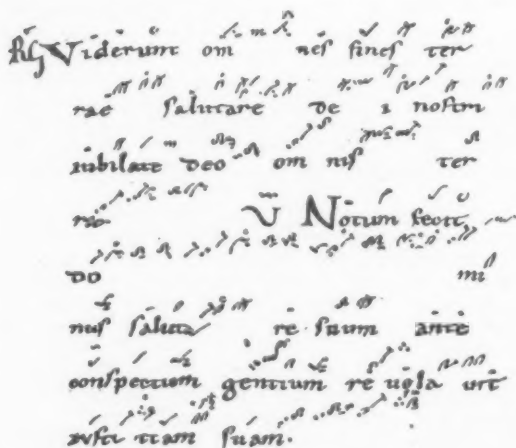 Viderunt om nes fines ter
rae salutare de i nostri
iubilate deo om nis ter
ra V Notum fecit
do mi
nus saluta re suum ante
conspectum gentium re uela uit
iusti tiam suam.